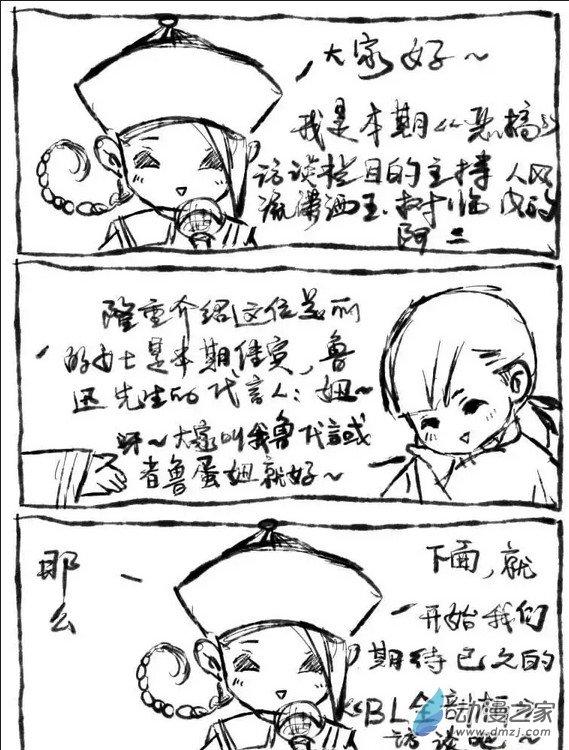 大家好~
我是本期《恶搞》
访谈栏目的主持人风
流潇洒玉树临风的
阿二
隆重介绍这位羞涩
的女士是本期佳宾,鲁
迅先生的代言人:妞~
呀~大家叫我鲁代言或
者鲁蛋妞就好~
那
么
下面,就
开始我们
期待已久的
《BL全剖析
访谈吧~
动漫之家
www.dmzj.com